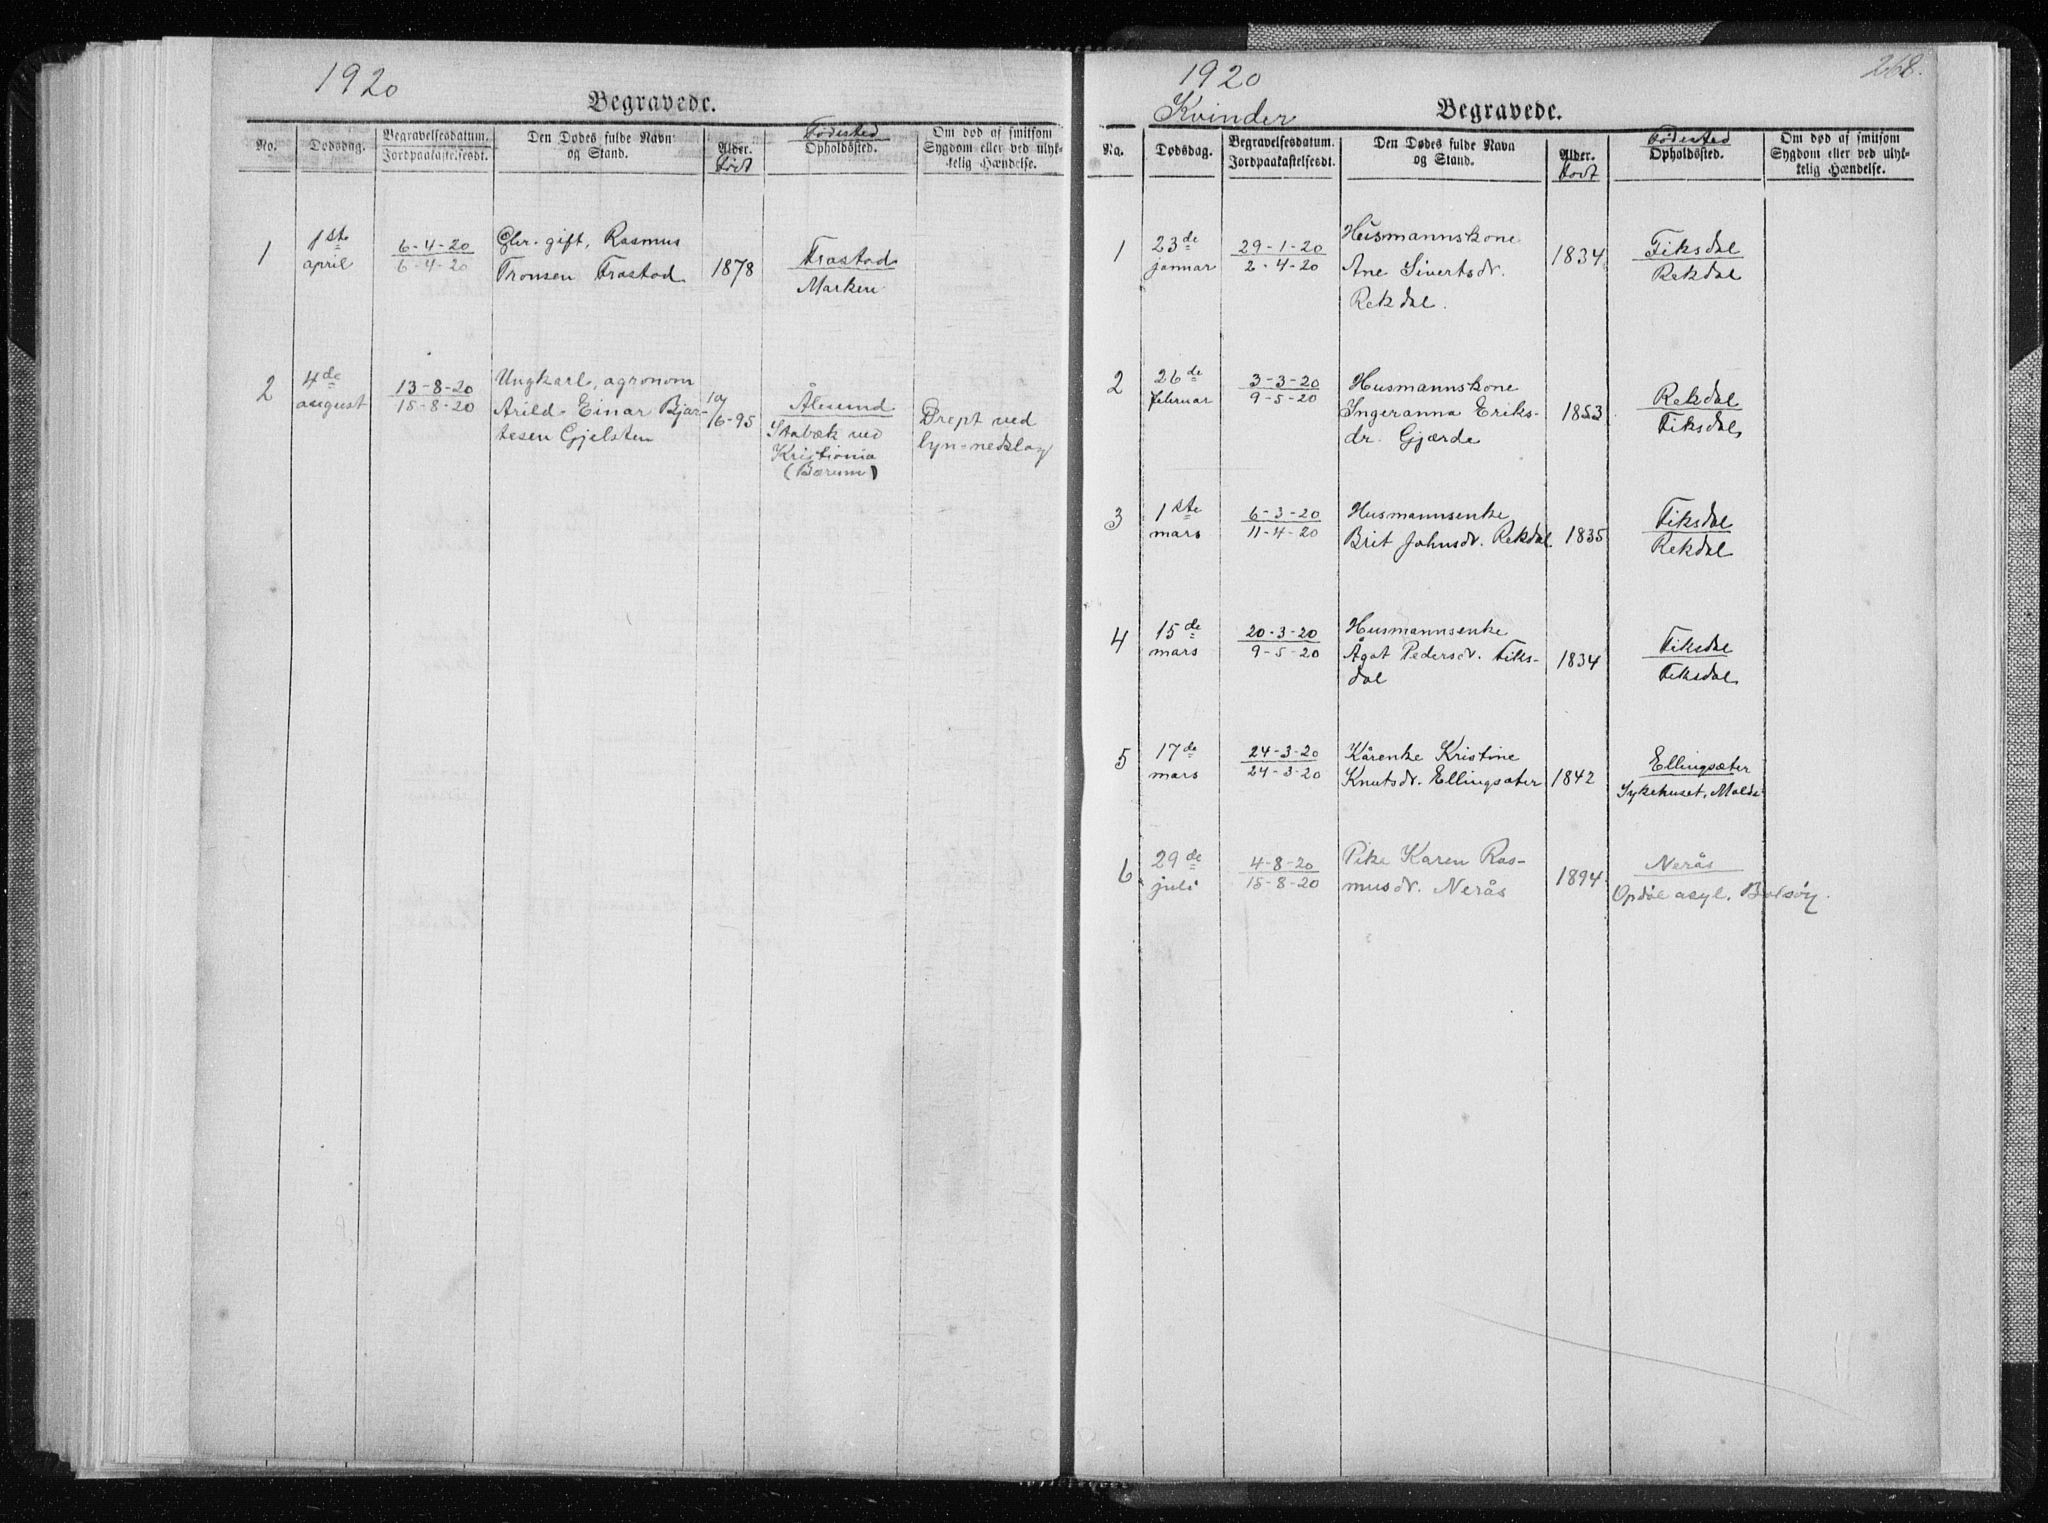 1920
Begravede.
No.
Dødsdag.
Begravelsesdatum.
Jordpaakastelsesdt.
Den Dødes fulde Navn
og Stand.
Alder.
født
Fødested
Opholdssted.
Om død af smitsom
Sygdom eller ved ulyk-
kelig Hændelse.
1
1ste
april
6-4-20
6-4-20
gift, Rasmus
Tronsen Frostad
1878
Frostad
Marken
2
4de
august
13-8-20
15-8-20
Ungkarl, agronom
Arild Einar Bjar-
tesen Gjelsten
16-95
Ålesund
Stabæk ved
Kristiania
(Bærum)
Drept ved
lyn-nedslag
1920
268.
Kvinder
Begravede.
No.
Dødsdag.
Begravelsesdatum.
Jordpaakastelsesdt.
Den Dødes fulde Navn
og Stand.
Alder.
født
Fødested
Opholdssted.
Om død af smitsom
Sygdom eller ved ulyk-
kelig Hændelse.
1
23de
januar
29-1-20
2-4-20
Husmannskone
Ane Sivertsdr.
Rekdal.
1834
Fiksdal
Rekdal
2
26de
februar
3-3-20
9-5-20
Husmannskone
Ingeranna Eriks-
dr. Gjærde
1853
Rekdal
Fiksdal
3
1ste
mars
6-3-20
11-4-20
Husmannsenke
Brit Johnsdr. Rekdal
1835
Fiksdal
Rekdal
4
15de
mars
20-3-20
9-5-20
Husmannsenke
Ågot Pedersdr. Fiks-
dal
1834
Fiksdal
Fiksdal
5
17de
mars
24-3-20
24-3-20
Kårenke Kristine
Knutsdr. Ellingsæter
1842
Ellingsæter
Sykehuset, Molde
6
29de
juli
4-8-20
15-8-20
Pike Karen Ras-
musdr. Nerås
1894
Nerås
Opdøl asyl. Bolsøy.